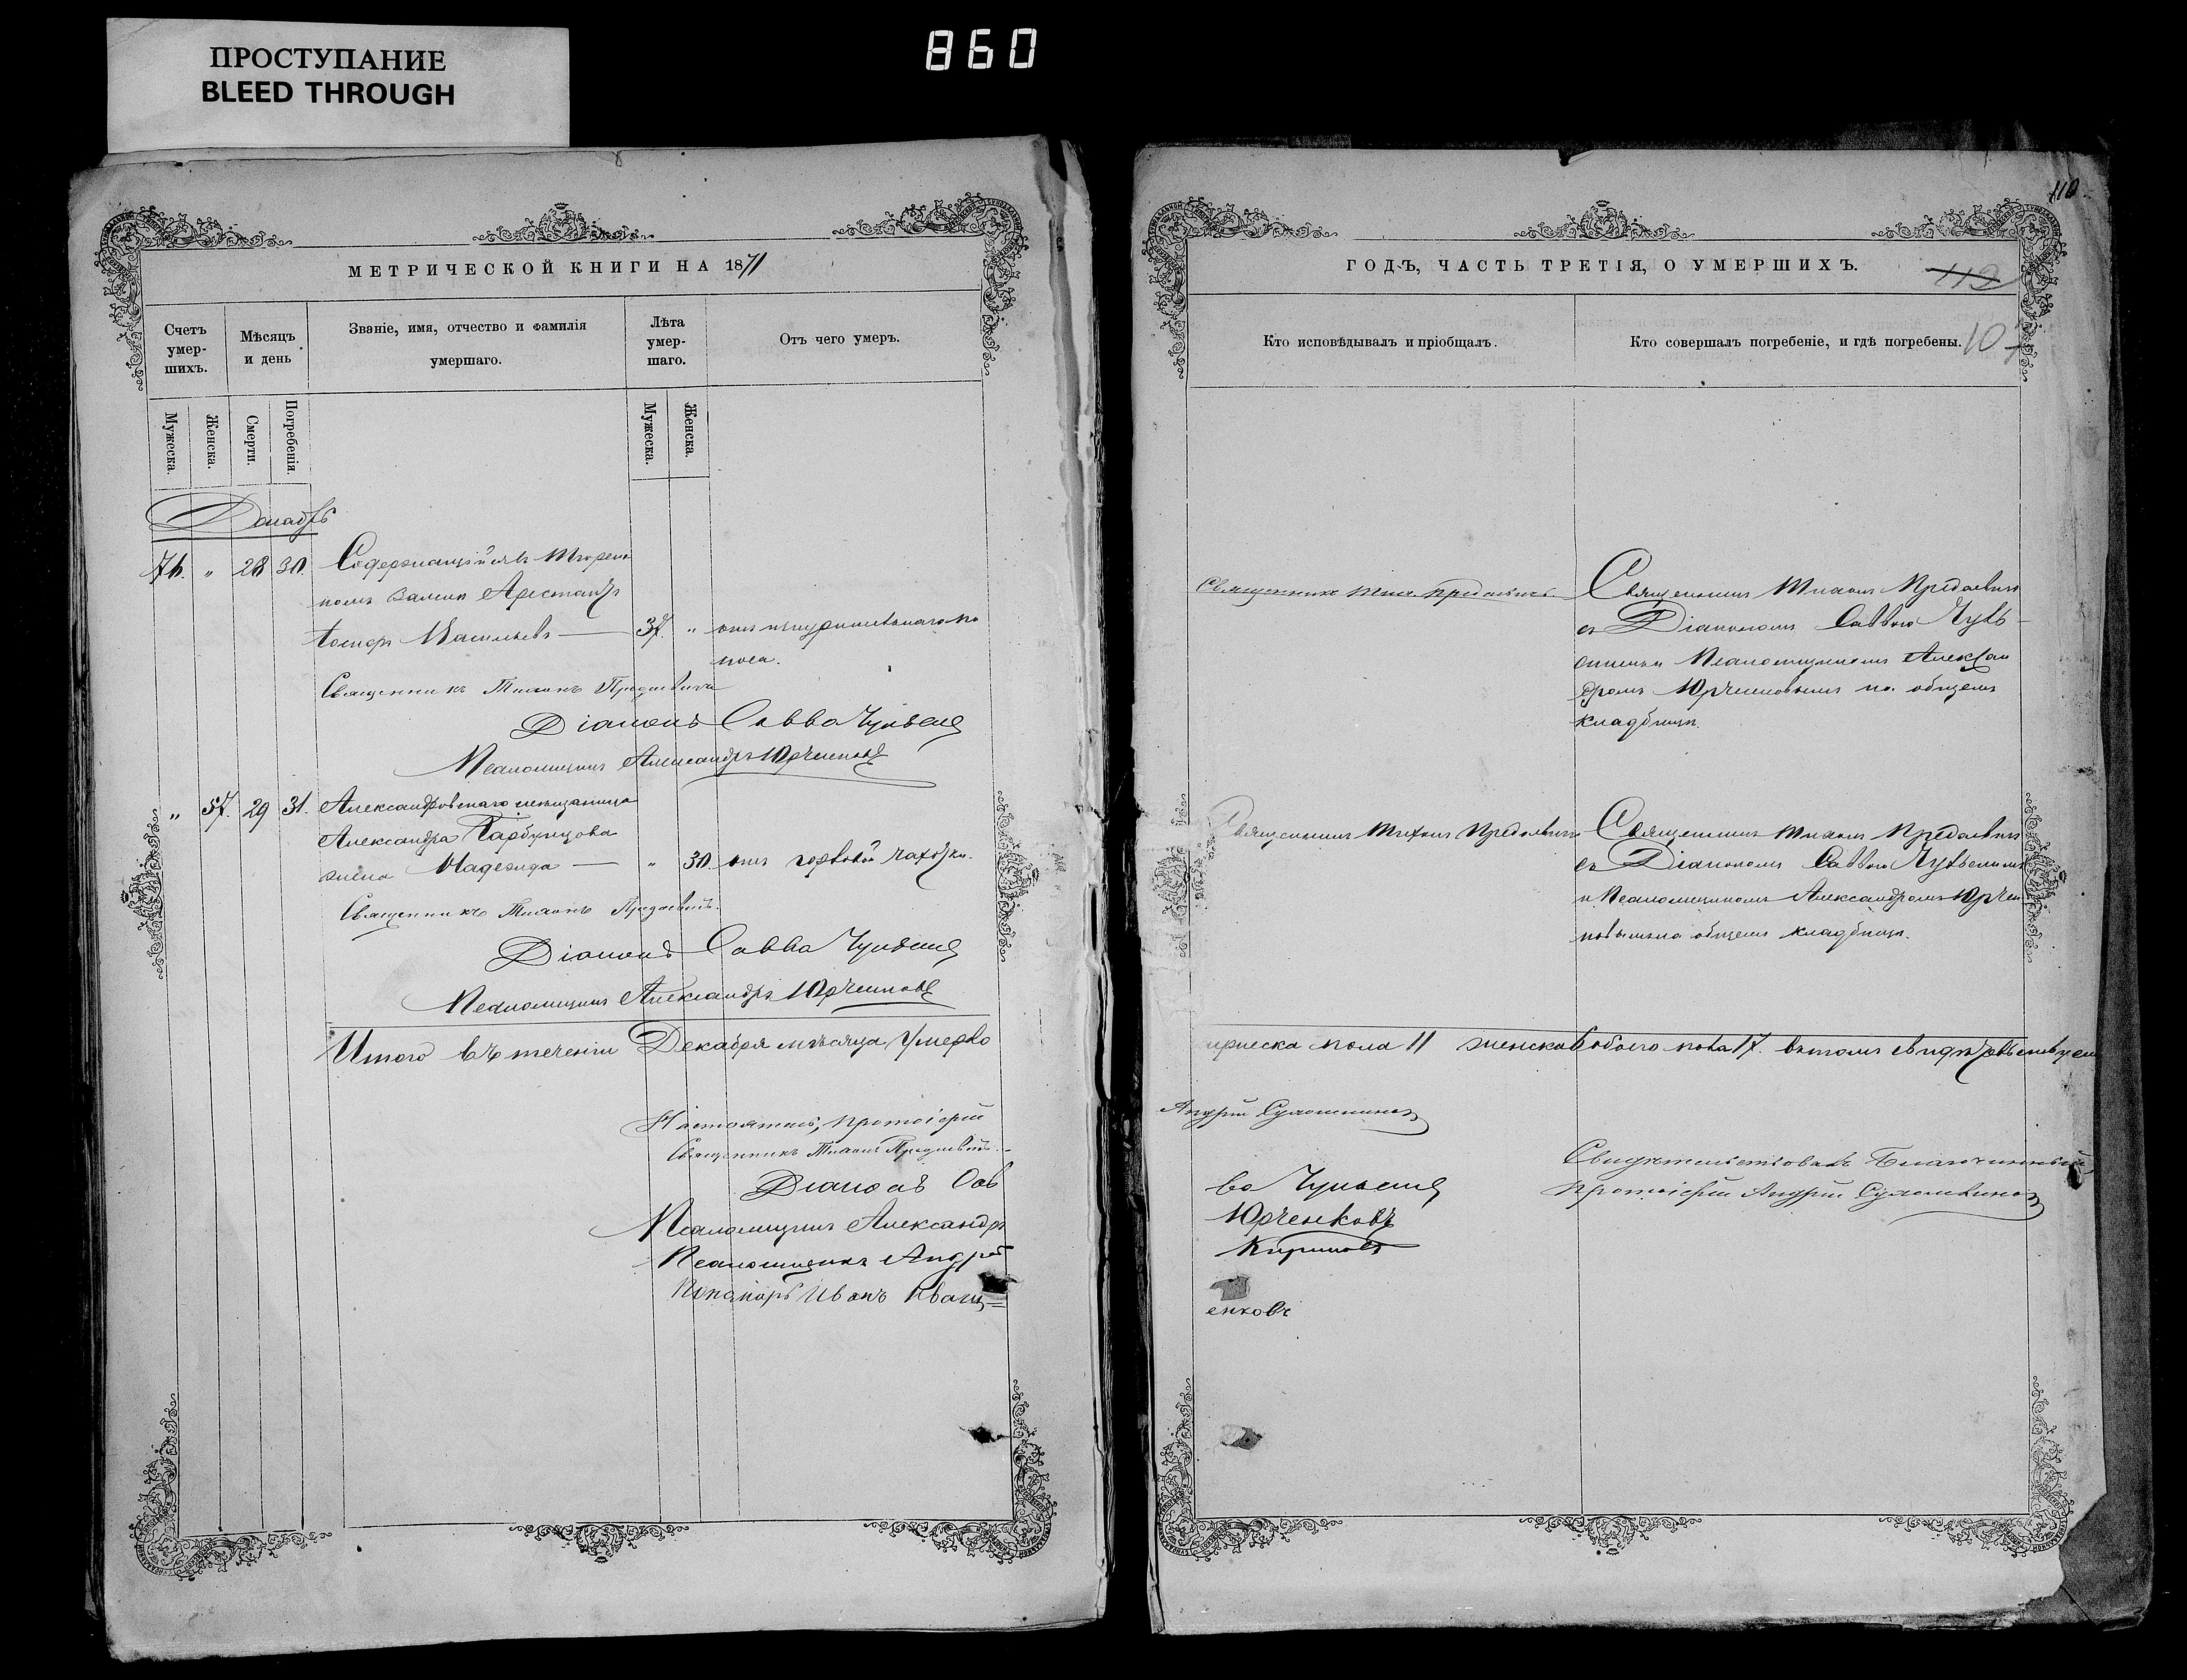 ПРОСТУПАНИЕ
BLEED THROUGH
860
МЕТРИЧЕСКОЙ КНИГИ НА 1871
Счетъ умер-шихъ.
Мѣсяцъ и день
Званіе, имя, отчество и фамилія умершаго.
Лѣта умер-шаго.
Отъ чего умеръ.
Мужеска.
Женска.
Смерти.
Погребенія.
Мужеска.
Женска.
Декабрь
76. " 28 30. Содержащійся въ Тюрем
номъ замкѣ Арестантъ
Іосифъ Васильевъ — 37. " отъ изнурительнаго по
носа.
Священникъ Тихонъ
Діаконъ Савва
Псаломщикъ Александръ Юрченковъ
" 57. 29 31. Александровскаго мѣщанина
Александра Гарбузцова
жена Надежда — " 30. отъ горловой чахотки.
Священникъ Тихонъ
Діаконъ Савва
Псаломщикъ Александръ Юрченковъ
Итого въ теченіи Декабря мѣсяца умерло
Настоятель, протоіерей
Священникъ Тихонъ
Діаконъ Сав
Псаломщикъ Александръ
Псаломщикъ Андрей
Пономарь Иванъ Кващ=
110
ГОДЪ, ЧАСТЬ ТРЕТІЯ, О УМЕРШИХЪ.
112
107
Кто исповѣдывалъ и пріобщалъ.
Кто совершалъ погребеніе, и гдѣ погребены.
Священникъ Тихонъ
Священникъ Тихонъ
съ Діакономъ Саввою
Псаломщикомъ Алексан
дромъ Юрченковымъ на общемъ
кладбищѣ.
Священникъ Тихонъ
Священникъ Тихонъ
съ Діакономъ Саввою
и Псаломщикомъ Александромъ Юрчен
ковымъ на общемъ кладбищѣ.
мужеска пола 11 женска 6 обоего пола 17. въ томъ
Андрей
ва
Юрченковъ
Кириловъ
енковъ
Свидѣтельствовалъ Благочинный,
протоіерей Андрей